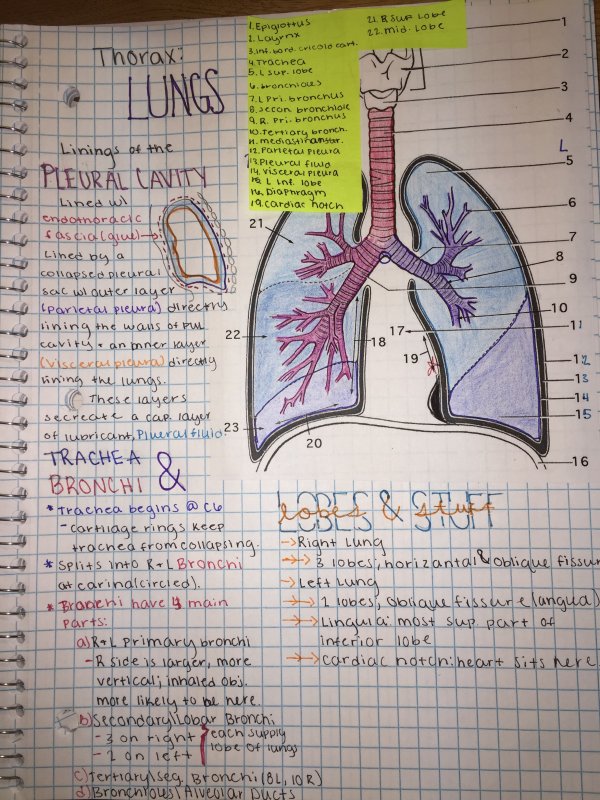 Thorax:
LUNGS
Linings of the
PLEURAL CAVITY
Lined w/
endothoracic
fascia (glue)
Lined by a
collapsed pleural
sac w/ outer layer
(Parietal pleura) directly
lining the walls of pul.
cavity & an inner layer
(visceral pleura) directly
lining the lungs.
These layers
secreate a cap. layer
of lubricant, Pleural fluid.
1. Epiglottus
2. Layrnx
3. inf. bord. cricoid cart.
4. Trachea
5. L sup. lobe
6. bronchioles
7. L Pri. bronchus
8. Secon. bronchiole
9. R. Pri. bronchus
10. Tertiary bronch.
12. Parietal pleura
13. Pleural fluid
14. Visceral pleura
15. L inf. lobe
16. Diaphragm
19. Cardiac notch
21. R SUP lobe
22. mid. lobe
1
2
3
4
L
5
6
7
8
9
10
11
12
13
14
15
16
17
18
19
20
21
22
23
TRACHEA
& BRONCHI
* Trachea begins @ C6
- cartilage rings keep
trachea from collapsing.
* Splits into R + L Bronchi
at carina (circled).
* Bronchi have 4 main
parts:
a) R + L primary bronchi
- R side is larger, more
vertical; inhaled obj.
more likely to be here.
b) Secondary/lobar Bronchi
- 3 on right
- 2 on left
each supply
lobe of lungs
c) Tertiary/seg. Bronchi (8L, 10R)
d) Bronchious/Alveolar Ducts
LOBES & STUFF
lobes & stuff
Right lung
3 lobes, horizantal & oblique fissur
Left lung
2 lobes, oblique fissure (langua)
Lingula: most sup. part of
inferior lobe
cardiac notch: heart sits here